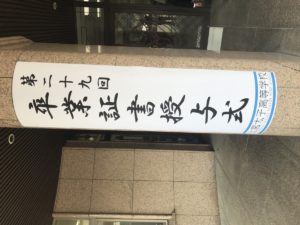 第二十九回
卒業証書授与式
女子高等学校